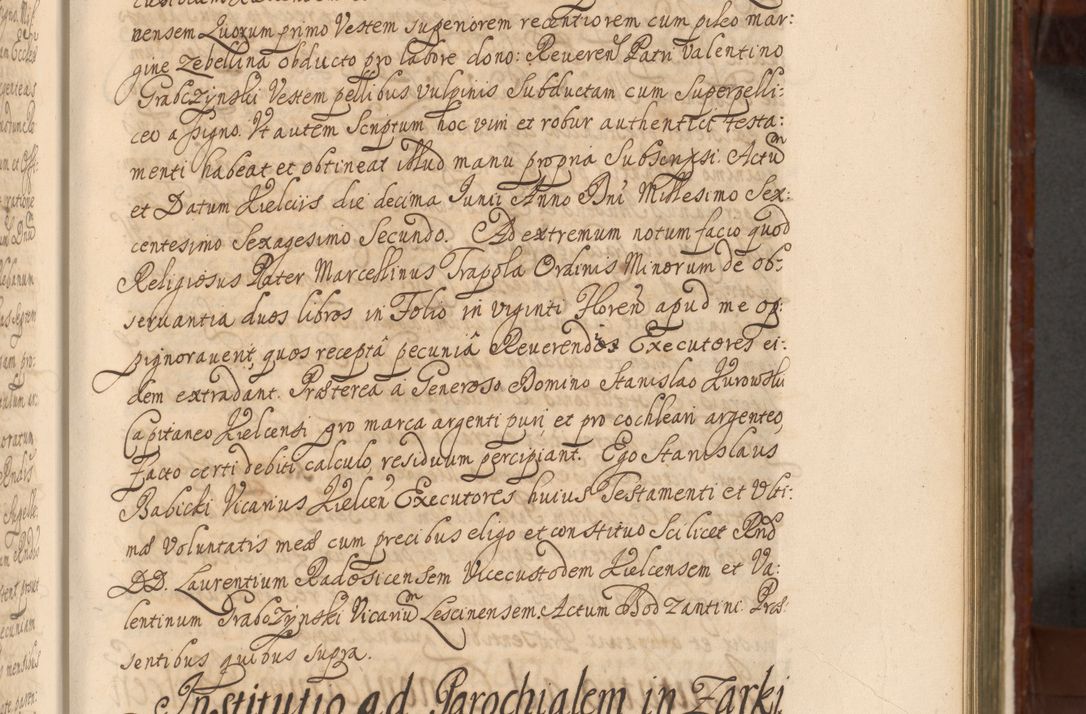 nensem Quorum primo Vestem superiorem recentiorem cum pileo mar:
gine Zebellina obducto pro labore dono: Reveren̄ Patri Valentino
Grabczynski Vestem pellibus vulpinis Subductam cum Superpelli:
ceo assigno. Ut autem Scriptum hoc vim et robur authentici Testa:
menti habeat et obtineat illud manu propria Subscripsi. Actum
et Datum Kielciis die decima Junii Anno Dni Millesimo Sex:
centesimo Sexagesimo Secundo. Ad extremum notum facio quod
Religiosus Pater Marcellinus Trappla Ordinis Minorum de ob:
servantia duos libros in Folio in viginti Floren̄ apud me op:
pignoraverit, quos receptâ pecuniâ Reverendos Executores ei:
dem extradant. Præterea a Generoso Domino Stanislao Kurowski
Capitaneo Kielcensi pro marca argenti puri, et pro cochleari argenteo,
facto certi debiti calculo, residuum percipiant. Ego Stanislaus
Babicki Vicarius Kielcen̄ Executores huius Testamenti et Ulti:
mæ Voluntatis meæ cum precibus eligo et constituo Scilicet Rnd
DD. Laurentium Radosicensem Vicecustodem Kielcensem et Va:
lentinum Grabczynski Vicarium Lescinensem. Actum Bodzantini. Præ
sentibus quibus supra.
Institutio ad Parochialem in Zarki